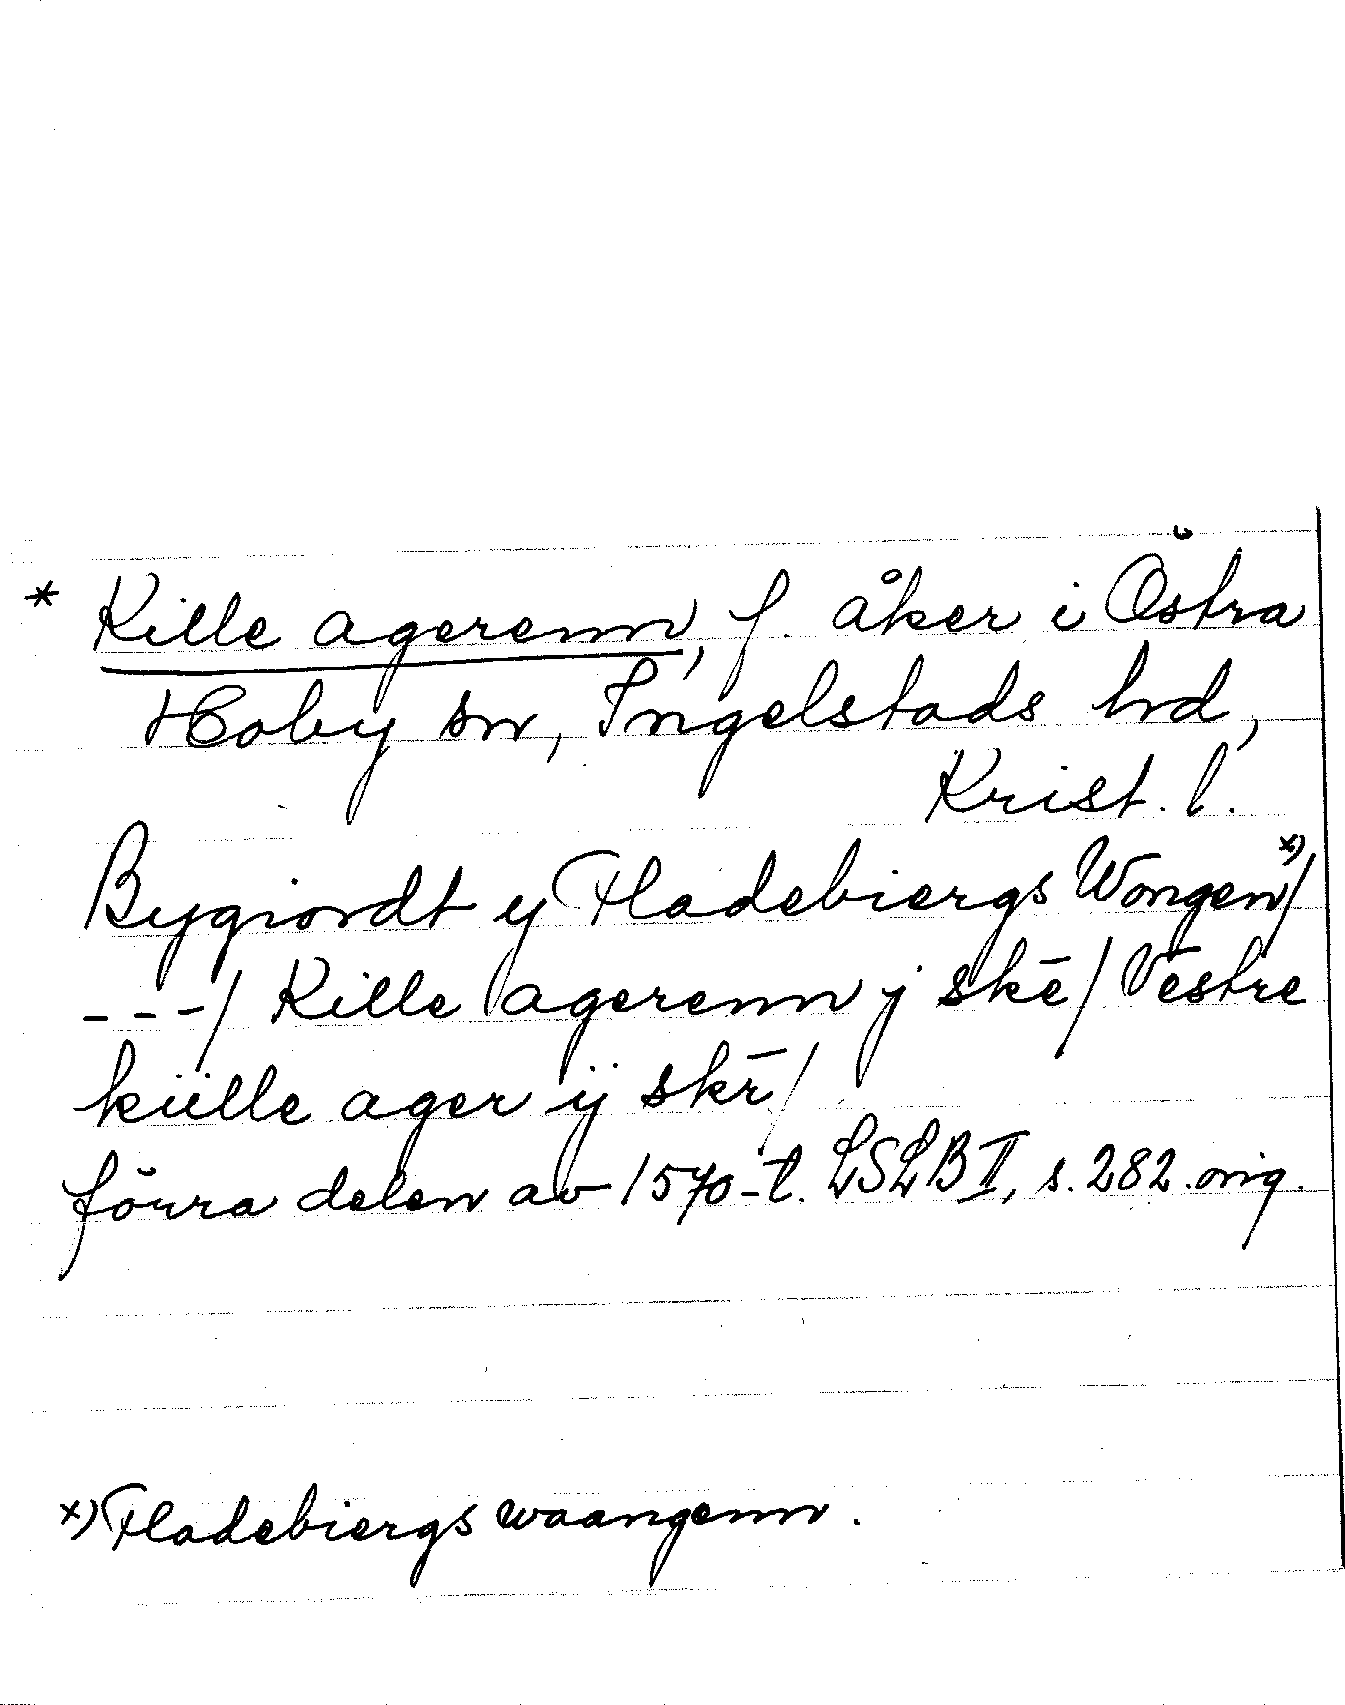 * Kille agerenn, f. åker i Östra
Hoby sn, Ingelstads hd,
Krist. l.
Bygiordt y Fladebiergs Wongen x)/
---/ Kille agerenn j skē/ Vestre
külle ager ÿ skr̄/
förra delen av 1570-t. LSLB II, s. 282 orig.
x) Fladebiergs waangenn.